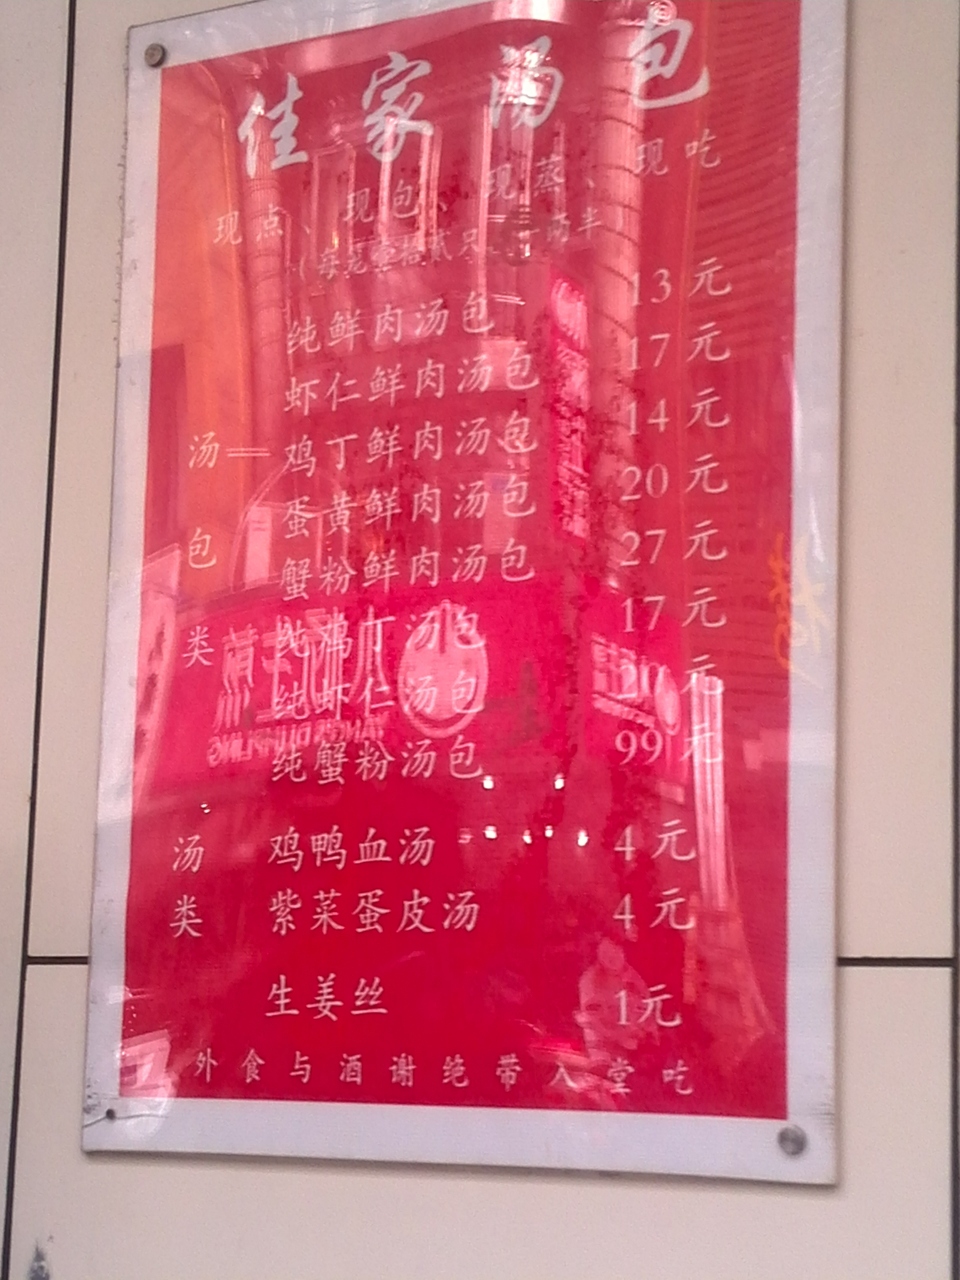 佳家汤包
现点、现包、现蒸、现吃
(每笼壹拾贰只 二两半
纯鲜肉汤包 13元
虾仁鲜肉汤包 17元
汤 鸡丁鲜肉汤包 14元
蛋黄鲜肉汤包 20元
包 蟹粉鲜肉汤包 27元
类 纯鸡丁汤包 17元
纯虾仁汤包 20元
纯蟹粉汤包 99元
汤 鸡鸭血汤 4元
类 紫菜蛋皮汤 4元
生姜丝 1元
外食与酒谢绝带入堂吃
YANG'S DUMPLING